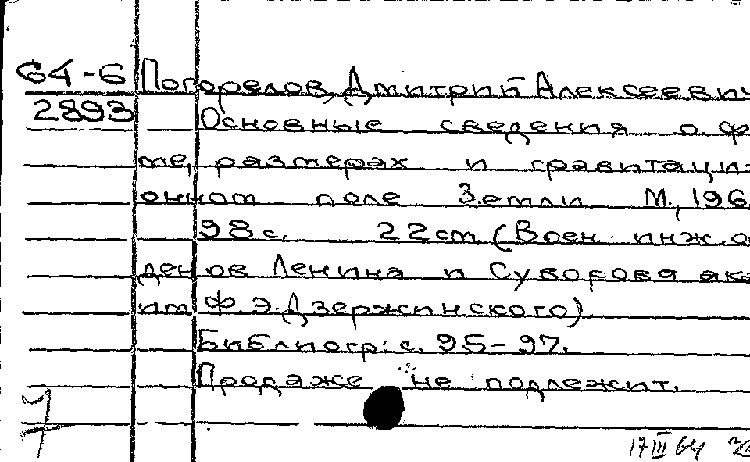 64-6 Погорелов, Дмитрий Алексеевич
2893 Основные сведения о ф
ме, размерах и гравитаци-
онном поле Земли М., 196
98 с. 22 см (Воен. инж. о
денов Ленина и Суворова ака
им Ф. Э. Дзержинского)
Библиогр: с. 95-97.
Продаже не подлежит.
17 III 64